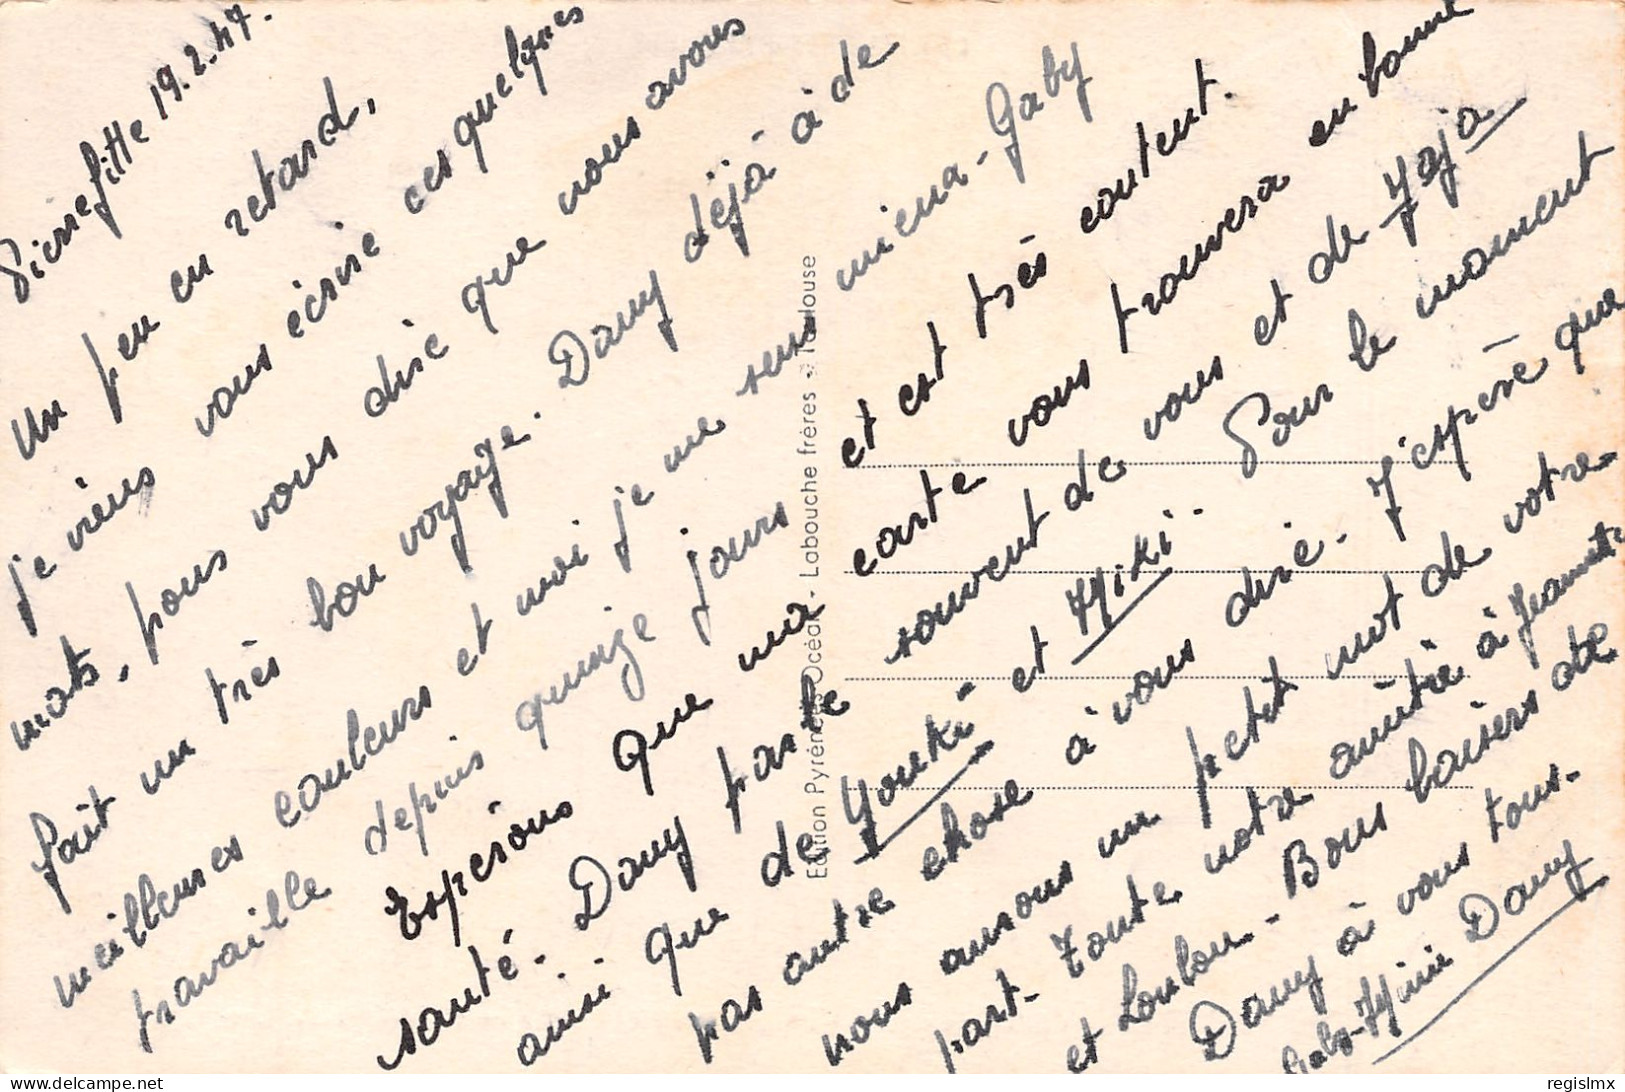 Pierrefitte 19.2.47.
Un peu en retard,
je viens vous écrire ces quelques
mots, pour vous dire que nous avons
fait un très bon voyage. Dany déjà à de
meilleures couleurs et moi je me sens mieux - Gaby
travaille depuis quinze jours
et est très content.
Espérons que ma carte vous trouvera en bonne
santé. Dany parle souvent de vous et de Jaja
ainsi que de Youki et Miki. Pour le moment
pas autre chose à vous dire. J'espère que
nous aurons un petit mot de votre
part. Toute notre amitié à Jeannette
et Loulou - Bons baisers de
Dany à vous tous.
Gaby-Mimi Dany
Edition Pyrénées-Océan - Labouche frères - Toulouse
regislmx